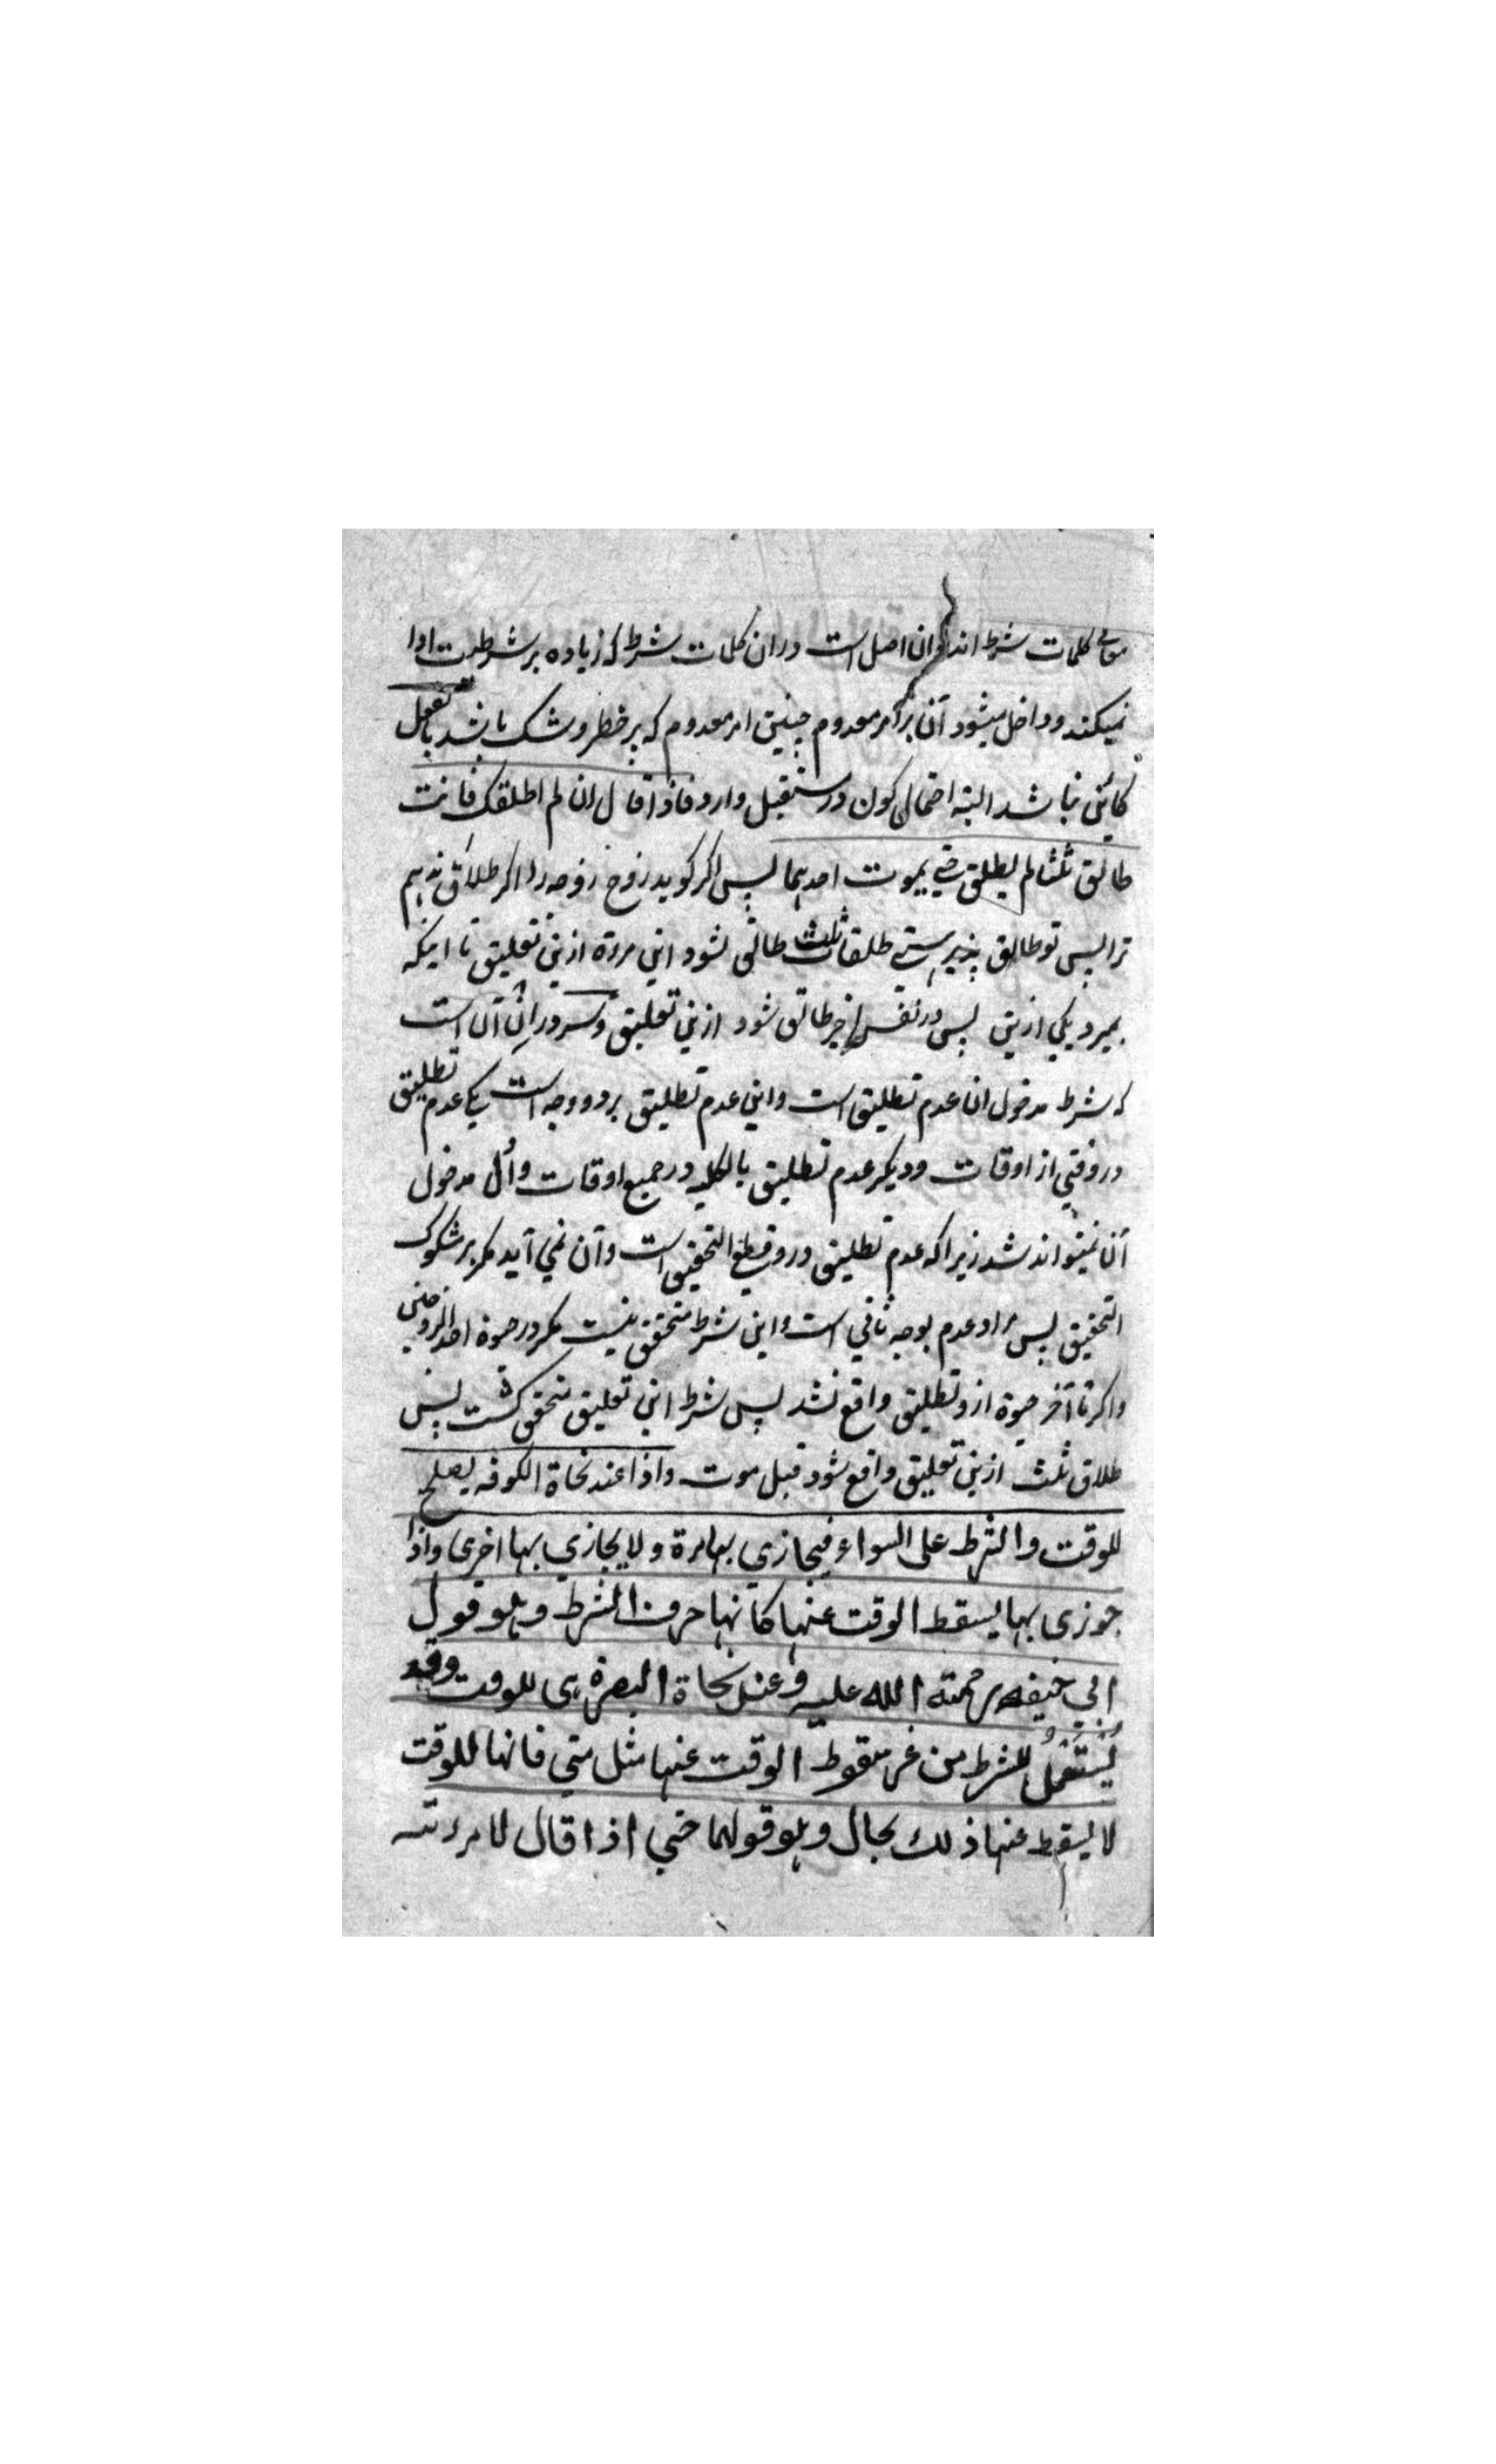 کلمات شرط اند وان اصل است دران کلمات شرط که زیاده بر شرطیت ادا
نمیکند وداخل میشود آن بر امر معدوم چنین امر معدوم که بر خطر وشک باشد بالفعل
کائن نباشد البته احتمال کون در مستقبل دارد فاذا قال ان لم اطلقک فانت
طالق ثلثا لم یطلق حتی یموت احدهما پس اگر گوید زوج زوجه را اگر طلاق ندهم
ترا پس تو طالق طلقات ثلث طالق نشود این مرءة ازین تعلیق تا اینکه
بمیرد یکی ازین پس در نفس اخیر طالق شود ازین تعلیق وسر دران آن است
که شرط مدخول ان عدم تطلیق است واین عدم تطلیق بر دو وجه است یکی عدم تطلیق
در وقتی از اوقات ودیگر عدم تطلیق بالکلیه در جمیع اوقات واول مدخول
آن نمیتواند شد زیرا که عدم تطلیق در وقتی قطع التحقیق است وآن نمی آید مگر بر مشکوک
التحقیق پس مراد عدم بوجه ثانی است واین شرط متحقق نیست مگر در حیوة احد الزوجین
واگر تا آخر حیوة ازو تطلیق واقع نشد پس شرط این تعلیق متحقق گشت پس
طلاق ثلث ازین تعلیق واقع شود قبل موت واذا عند نحاة الکوفه یصلح
للوقت والشرط علی السواء فیجازی بها مرة ولا یجازی بها اخری واذا
جوزی بها یسقط الوقت عنها کانها حرف الشرط وهو قول
ابی حنیفه رحمته الله علیه وعند نحاة البصرة هی للوقت وقد
یُستَعْمَلُ للشرط من غیر سقوط الوقت عنها مثل متی فانها للوقت
لا یسقط عنها ذلک بحال وهو قولهما حتی اذا قال لامرءته